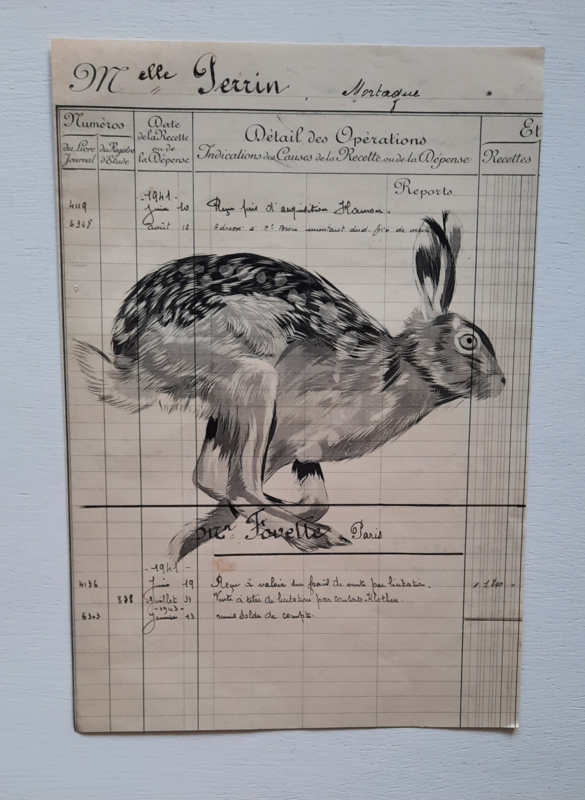 Melle Perrin, Mortagne
Numéros
Date
de la Recette
ou de
la Dépense
Détail des Opérations
Indications des Causes de la Recette ou de la Dépense
Et
du Livre
Journal
du Registre
d'Etude
Recettes
Reports
-1941-
4119 Juin 10 Reçu prix d'acquisition Hamon.
6348 Août 12
Fovette Paris
-1941-
4136 Juin 19 Reçu à valoir sur frais de vente par licitation. 1.800
838 Juillet 31 Vente à titre de licitation par
-1943-
6303 Janvier 13 remis Solde de compte.